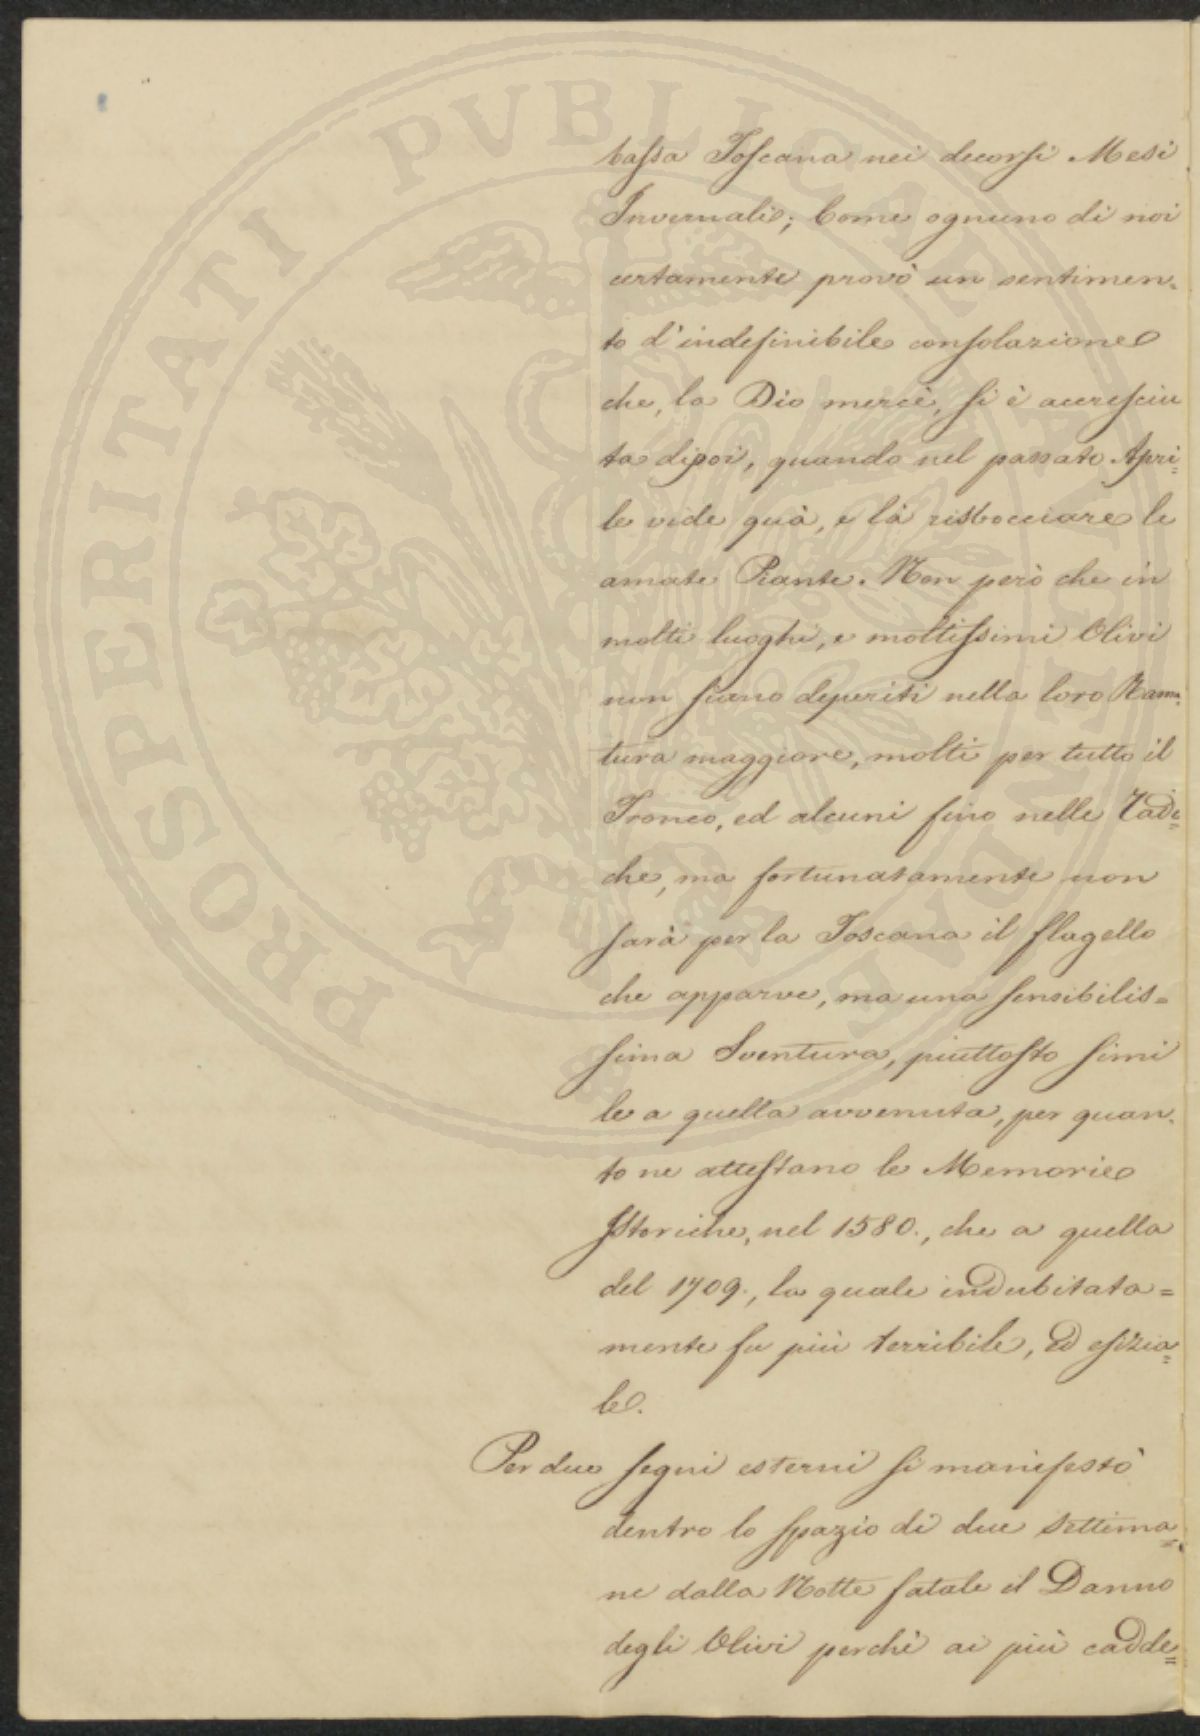 PROSPERITATI PUBLICAE AUGENDAE
bassa Toscana nei decorsi Mesi
Invernali; Come ognuno di noi
certamente provò un sentimen-
to d'indefinibile consolazione
che, la Dio mercè, si è accresciu
ta dipoi, quando nel passato Apri=
le vide quà, e là risbocciare le
amate Piante. Non però che in
molti luoghi, e moltissimi Olivi
non siano deperiti nella loro Rama-
tura maggiore, molti per tutto il
Tronco, ed alcuni fino nelle Radi=
che, ma fortunatamente non
sarà per la Toscana il flagello
che apparve, ma una sensibilis=
sima Sventura, piuttosto simi
le a quella avvenuta, per quan-
to ne attestano le Memorie
Istoriche, nel 1580., che a quella
del 1709., la quale indubitata=
mente fu più terribile, ed esizia=
le.
Per due segni esterni si manifestò
dentro lo spazio di due Settima=
ne dalla Notte fatale il Danno
degli Olivi perchè ai più cadde=